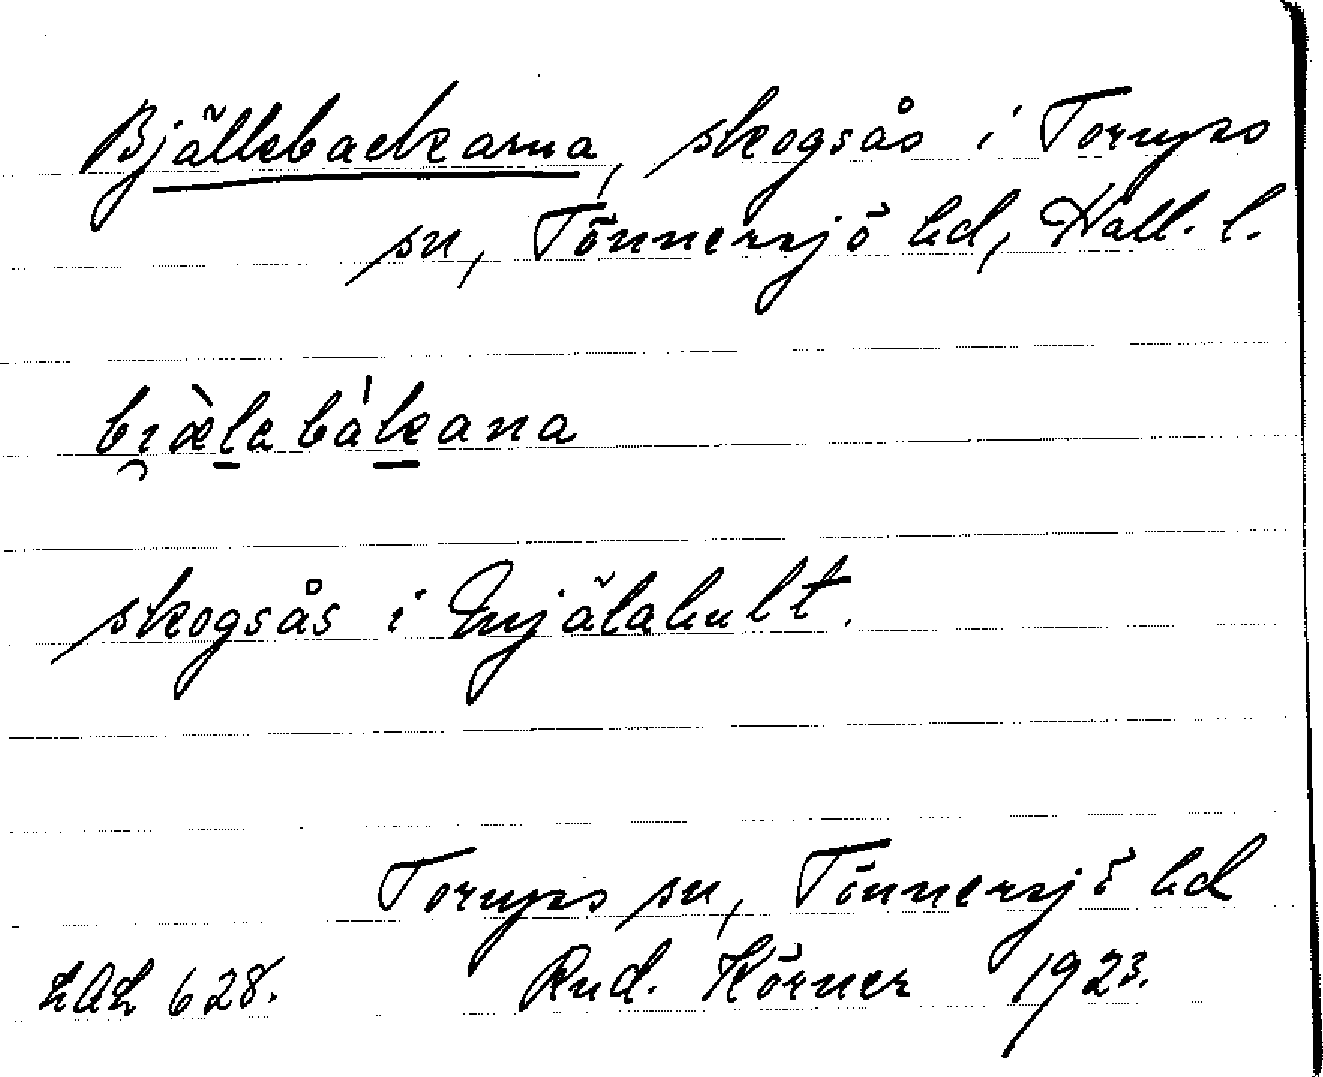 Bjällebackarna, skogsås i Torups
sn, Tönnersjö hd, Hall. l.
bi̯æ̀l̠ebàk̠ana
skogsås i Mjälahult.
Torups sn, Tönnersjö hd
LAL 628. Rud. Körner 1923.